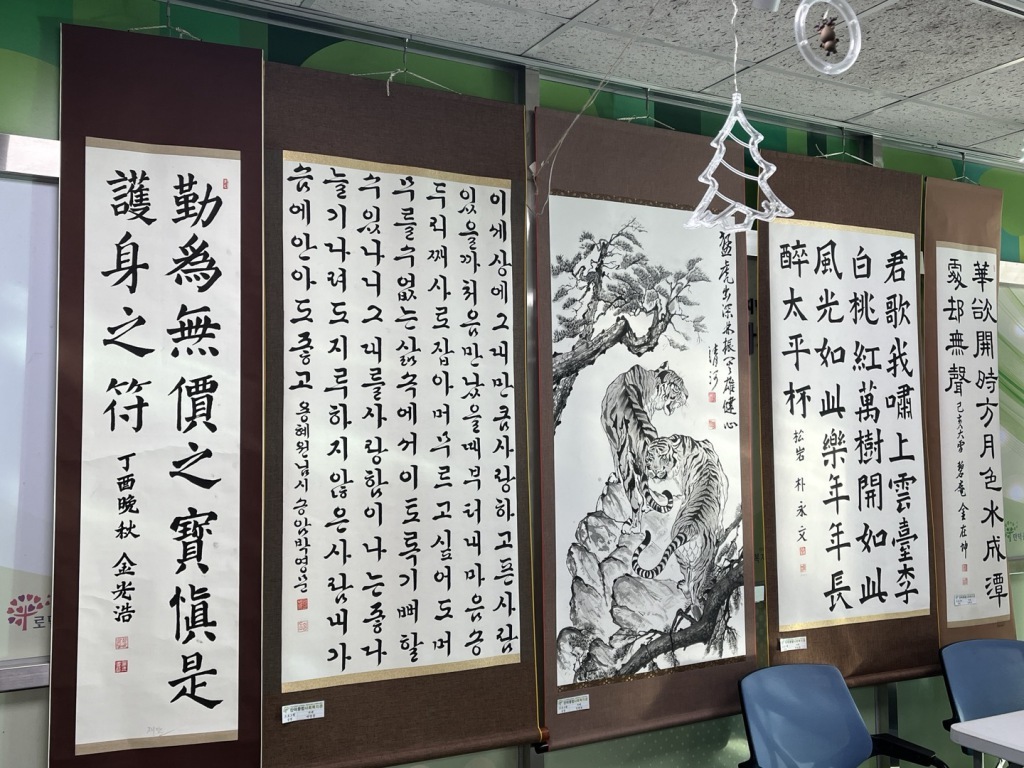 勤爲無價之寶愼是
護身之符 丁酉晩秋 金光浩
이세상에그대만큼사랑하고픈사람
있을까처음만났을때부터내마음송
두리째사로잡아머무르고싶어도머
무를수없는삶속에서이토록기뻐할
수있나니그대를사랑함이나는좋다
늘기다려도지루하지않은사람내가
슴에안아도좋고 용혜원님시 송암박영순
猛虎出深林振 雄健心
君歌我嘯上雲臺李
白桃紅萬樹開如此
風光如此樂年年長
醉太平杯 松岩 朴永文
華欲開時方月色水成潭
處却無聲 己亥大雪 碧庵 金在仲